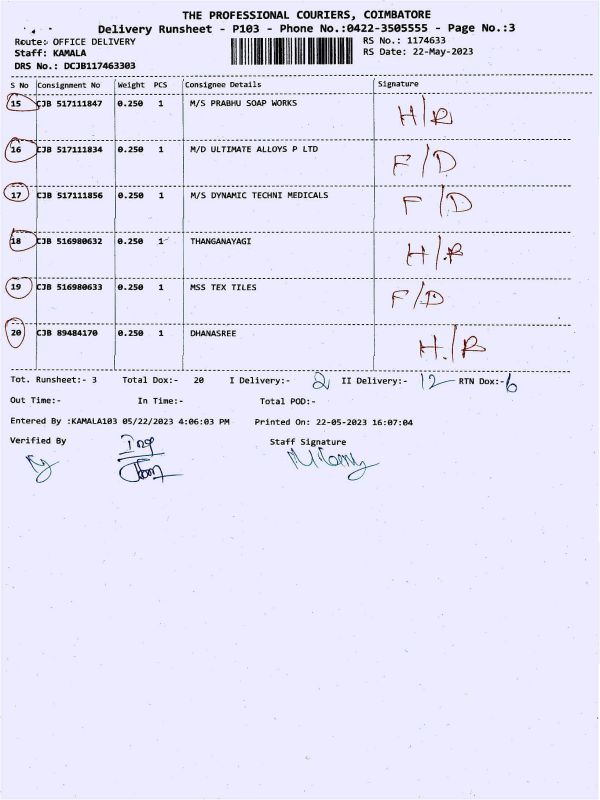 THE PROFESSIONAL COURIERS, COIMBATORE
Delivery Runsheet - P103 - Phone No.:0422-3505555 - Page No.:3
Route:- OFFICE DELIVERY RS No.: 1174633
Staff: KAMALA RS Date: 22-May-2023
DRS No.: DCJB117463303
S No Consignment No Weight PCS Consignee Details Signature
15 CJB 517111847 0.250 1 M/S PRABHU SOAP WORKS H/R
16 CJB 517111834 0.250 1 M/D ULTIMATE ALLOYS P LTD F/D
17 CJB 517111856 0.250 1 M/S DYNAMIC TECHNI MEDICALS F/D
18 CJB 516980632 0.250 1 THANGANAYAGI H/R
19 CJB 516980633 0.250 1 MSS TEX TILES F/D
20 CJB 89484170 0.250 1 DHANASREE H/R
Tot. Runsheet:- 3 Total Dox:- 20 I Delivery:- 2 II Delivery:- 12 RTN Dox:- 6
Out Time:- In Time:- Total POD:-
Entered By :KAMALA103 05/22/2023 4:06:03 PM Printed On: 22-05-2023 16:07:04
Verified By Staff Signature